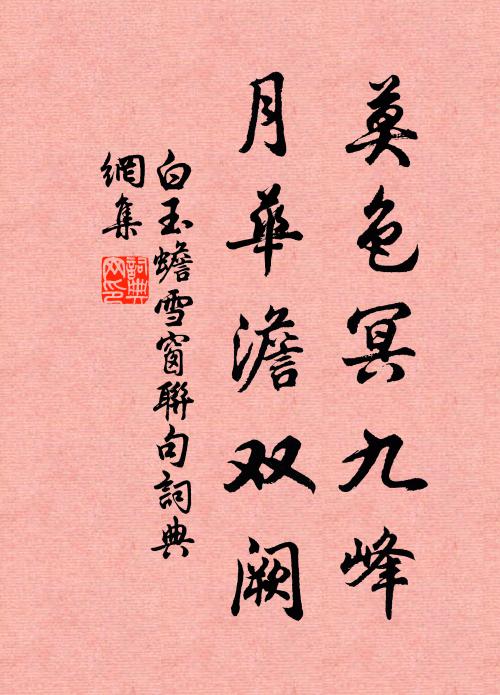 莫色冥九峰
月華澹双阙
白玉蟾雪窗聯句詞典
網集
詞典
网印